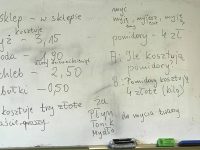 sklep - w sklepie
kosztuje
yż - 3,15
oda - 1,90
chleb - 2,50
bułki - 0,50
kosztuje trzy złote
za
Płyn
Tonik
Mydło
myć
myję, myjesz, myją
pomidory - 4 zł
A: Ile kosztują
pomidory?
B: Pomidory kosztują
4 złote (kilo)
do mycia twarzy